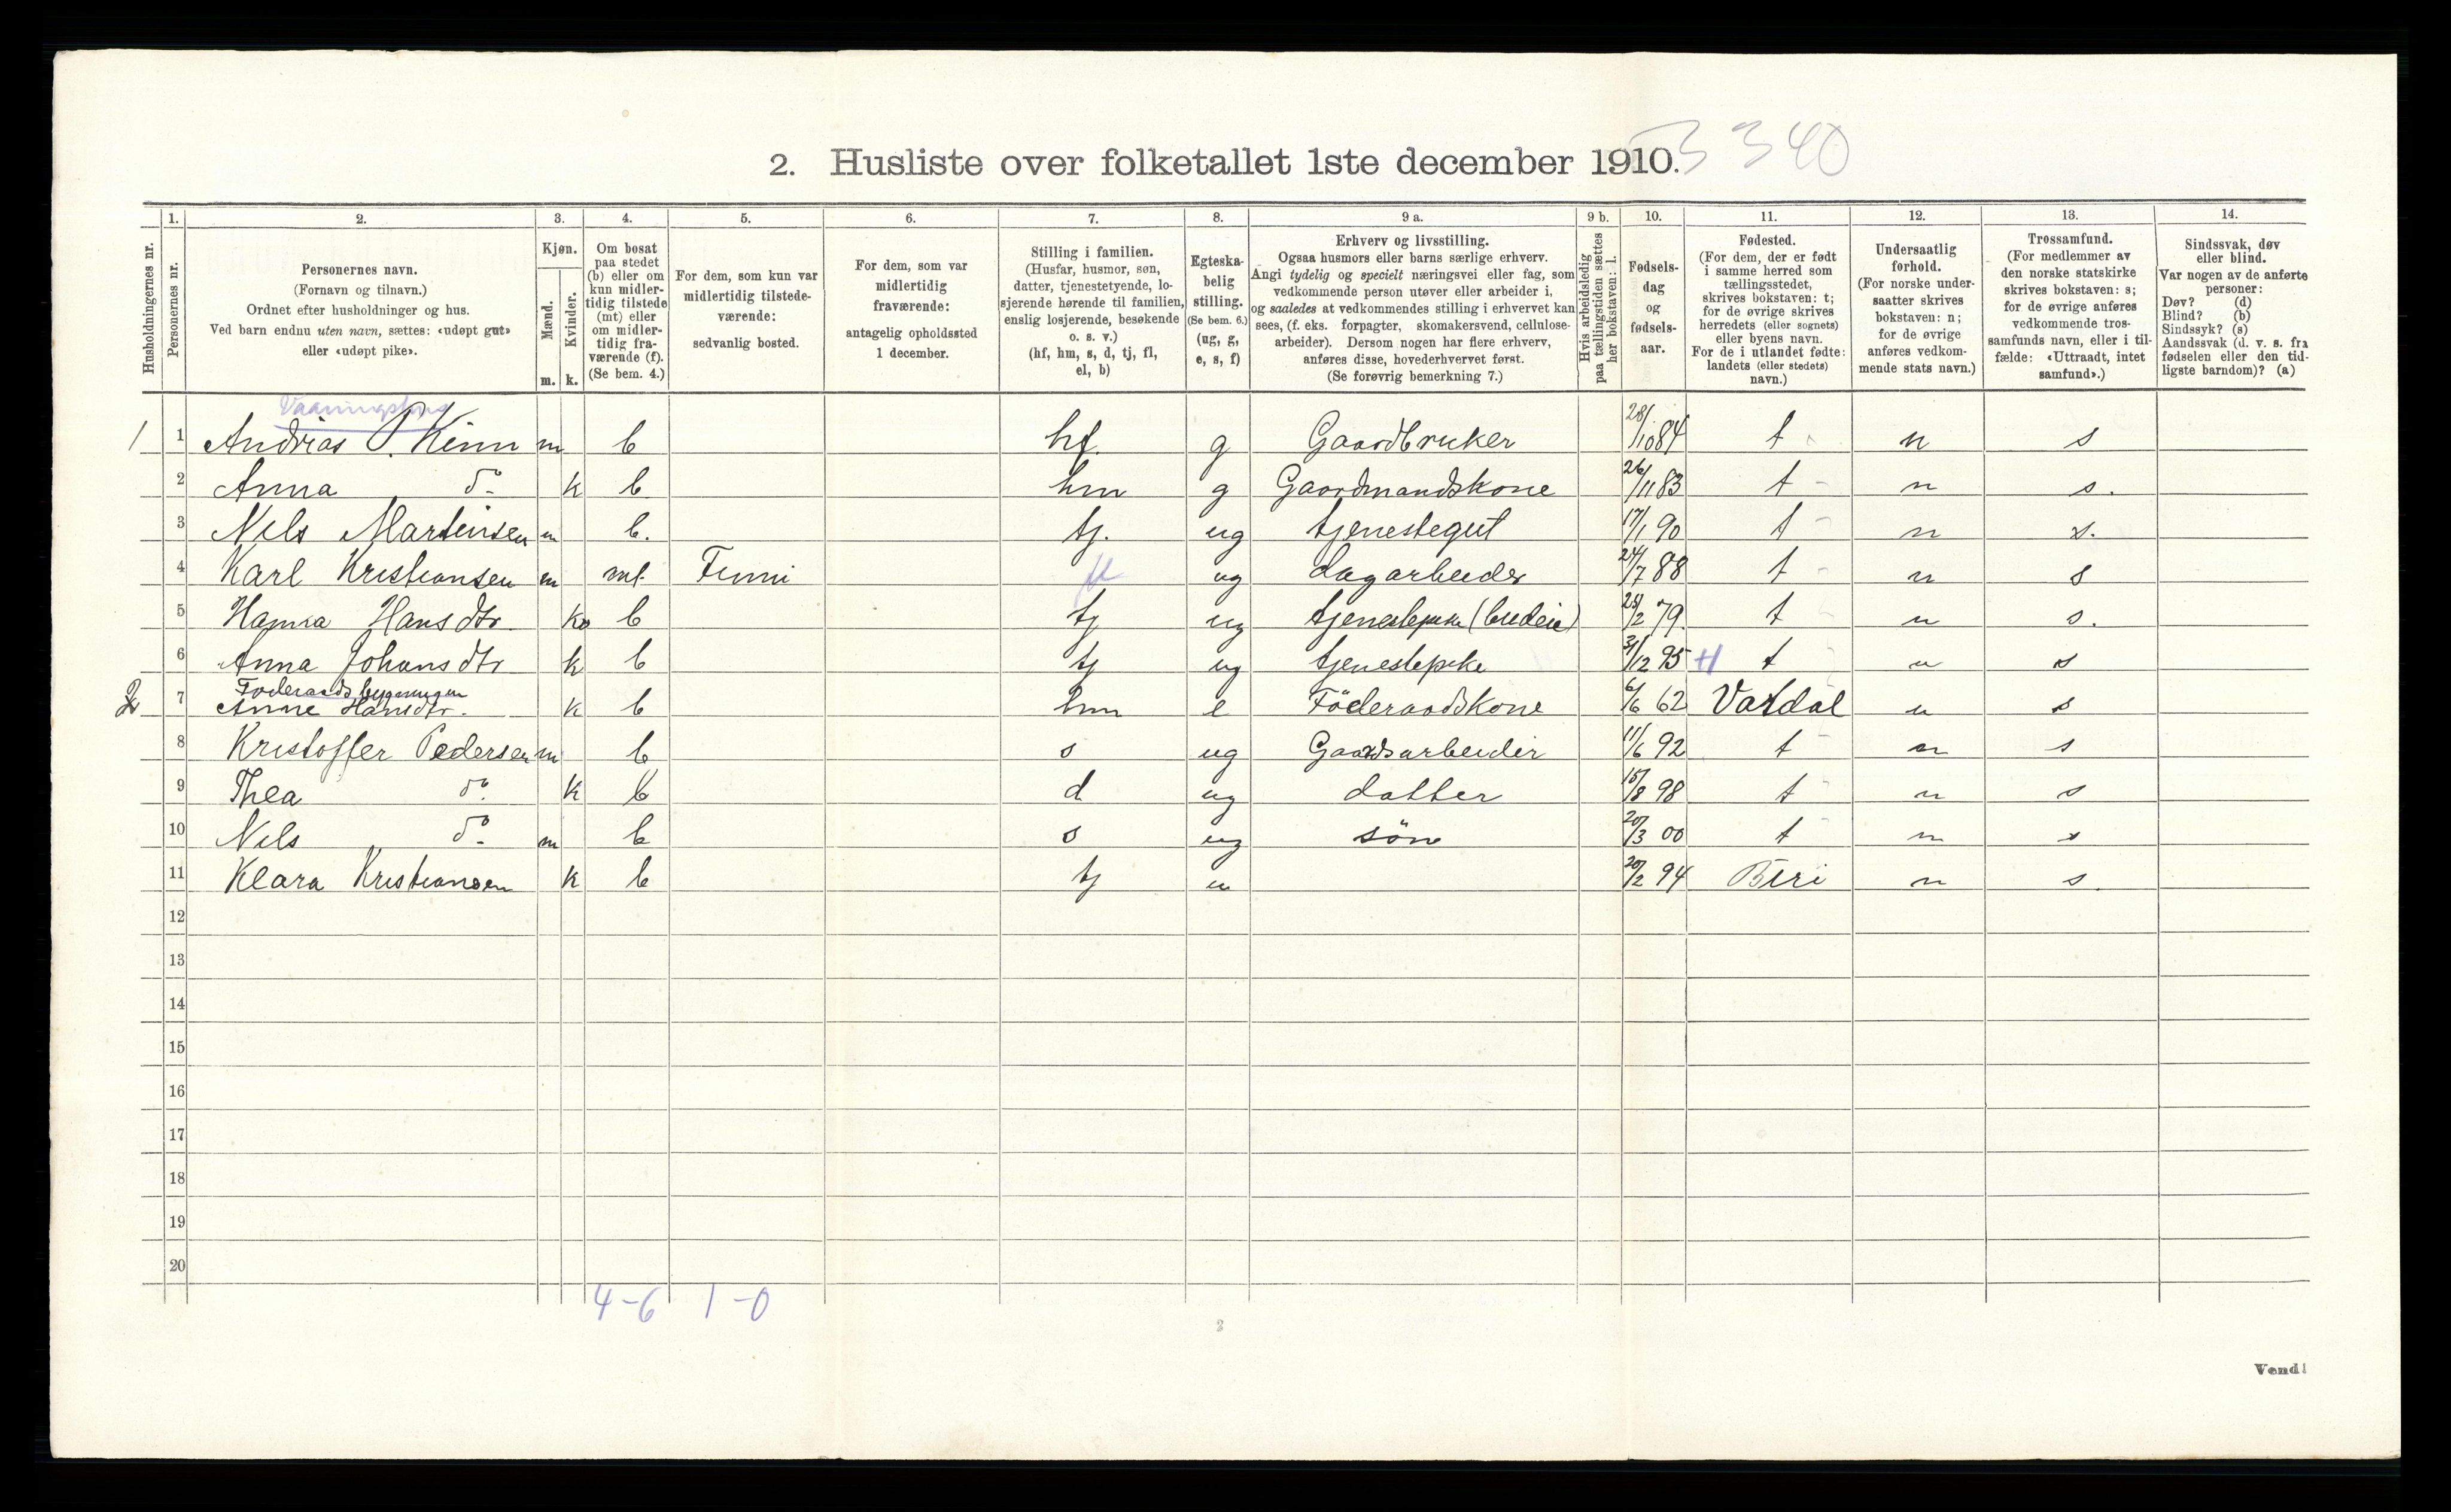 3340
2. Husliste over folketallet 1ste december 1910.
Husholdningernes nr.
1. Personernes nr.
2. Personernes navn. (Fornavn og tilnavn.) Ordnet efter husholdninger og hus. Ved barn endnu uten navn, sættes: «udøpt gut» eller «udøpt pike».
3. Kjøn. Mænd. m. Kvinder. k.
4. Om bosat paa stedet (b) eller om kun midlertidig tilstede (mt) eller om midlertidig fraværende (f). (Se bem. 4.)
5. For dem, som kun var midlertidig tilstedeværende: sedvanlig bosted.
6. For dem, som var midlertidig fraværende: antagelig opholdssted 1 december.
7. Stilling i familien. (Husfar, husmor, søn, datter, tjenestetyende, losjerende hørende til familien, enslig losjerende, besøkende o. s. v.) (hf, hm, s, d, tj, fl, el, b)
8. Egteskabelig stilling. (Se bem. 6.) (ug, g, e, s, f)
9 a. Erhverv og livsstilling. Ogsaa husmors eller barns særlige erhverv. Angi tydelig og specielt næringsvei eller fag, som vedkommende person utøver eller arbeider i, og saaledes at vedkommendes stilling i erhvervet kan sees, (f. eks. forpagter, skomakersvend, cellulosearbeider). Dersom nogen har flere erhverv, anføres disse, hovederhvervet først. (Se forøvrig bemerkning 7.)
9 b. Hvis arbeidsledig paa tællingstiden sættes her bokstaven: l.
10. Fødselsdag og fødselsaar.
11. Fødested. (For dem, der er født i samme herred som tællingsstedet, skrives bokstaven: t; for de øvrige skrives herredets (eller sognets) eller byens navn. For de i utlandet fødte: landets (eller stedets) navn.)
12. Undersaatlig forhold. (For norske undersaatter skrives bokstaven: n; for de øvrige anføres vedkommende stats navn.)
13. Trossamfund. (For medlemmer av den norske statskirke skrives bokstaven: s; for de øvrige anføres vedkommende trossamfunds navn, eller i tilfælde: «Uttraadt, intet samfund».)
14. Sindssvak, døv eller blind. Var nogen av de anførte personer: Døv? (d) Blind? (b) Sindssyk? (s) Aandssvak (d. v. s. fra fødselen eller den tidligste barndom)? (a)
1 1 Andrias P. Kinn m b hf. g Gaardbruker 28/10 84 t n s
2 Anna do k b hm g Gaardmandskone 26/11 83 t n s.
3 Nils Martinsen m b. tj. ug tjenestegut 17/1 90 t n s.
4 Karl Kristiansen m mt. fl ug dagarbeider 24/7 88 t n s
5 Hanna Hansdtr k b tj ug tjenestepike (budeie) 28/2 79. t n s.
6 Anna Johansdtr k b tj ug tjenestepike 31/12 95 t n s
2 Föderaadsbygningen
7 Anne Hansdtr. k b hm e Föderaadskone 6/6 62 Vardal n s
8 Kristoffer Pedersen m b s ug Gaardsarbeider 11/6 92 t n s
9 Thea do k b d ug datter 15/8 98 t n s
10 Nils do m b s ug sön 20/3 00 t n s
11 Klara Kristiansen k b tj u 20/2 94 Biri n s.
12
13
14
15
16
17
18
19
20
4-6 1-0
Vend!